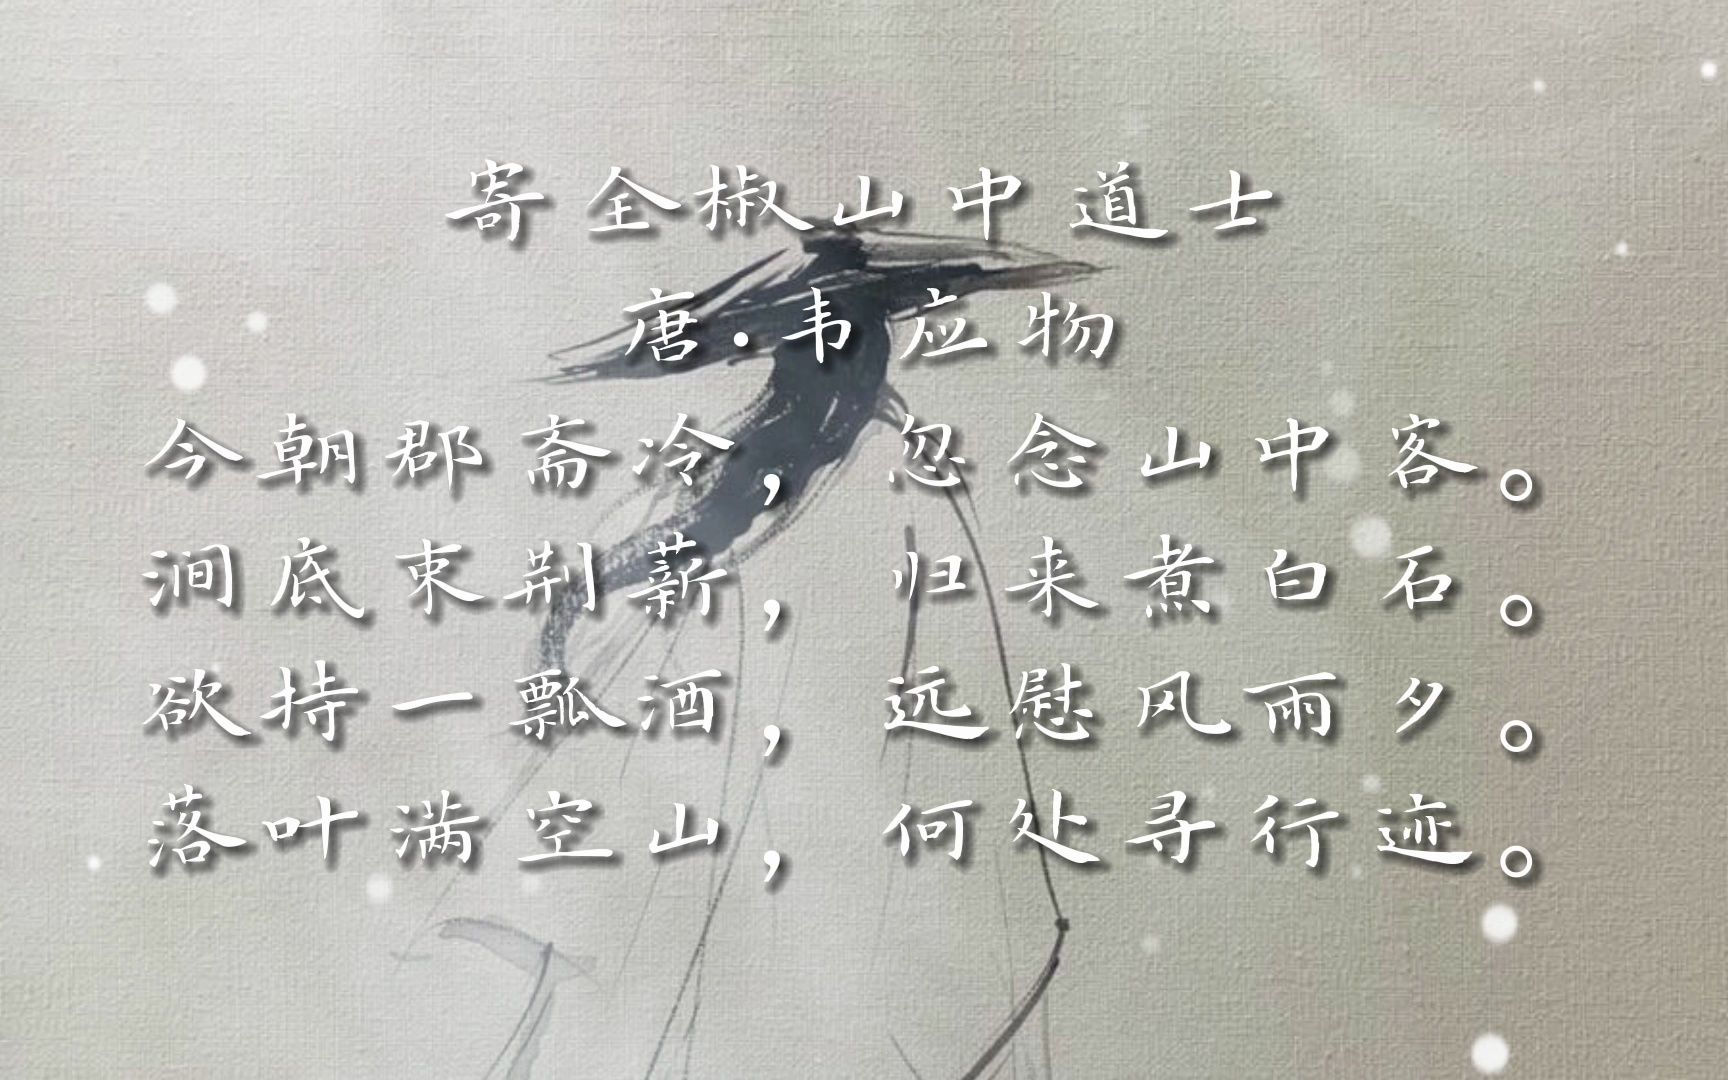 寄全椒山中道士
唐·韦应物
今朝郡斋冷，忽念山中客。
涧底束荆薪，归来煮白石。
欲持一瓢酒，远慰风雨夕。
落叶满空山，何处寻行迹。